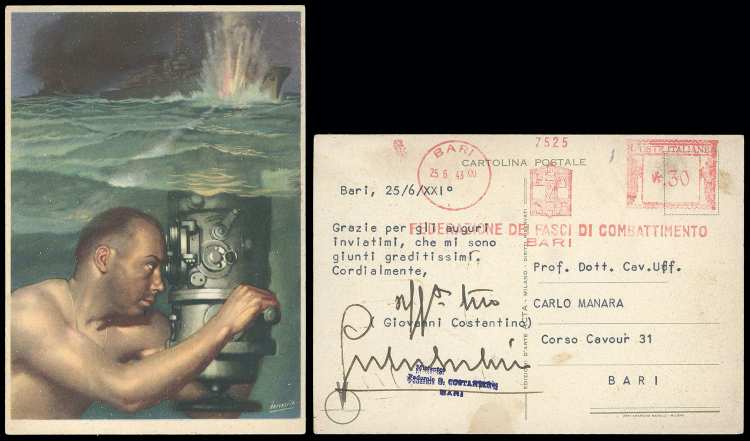 7525
BARI
25 6 43
CARTOLINA POSTALE
POSTE ITALIANE
30
Bari, 25/6/XXI°
FEDERAZIONE DEI FASCI DI COMBATTIMENTO
BARI
Grazie per gli auguri
inviatimi, che mi sono
giunti graditissimi.
Cordialmente,
(Giovanni Costantino)
Prof. Dott. Cav.Uff.
CARLO MANARA
Corso Cavour 31
BARI
G. COSTANTINO
BARI